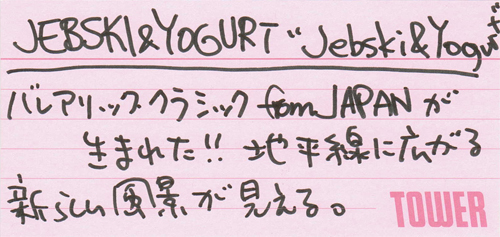 JEBSKI&YOGURT "Jebski&Yogurt"
バレアリック・クラシック from JAPAN が
生まれた!! 地平線に広がる
新しい風景が見える。
TOWER